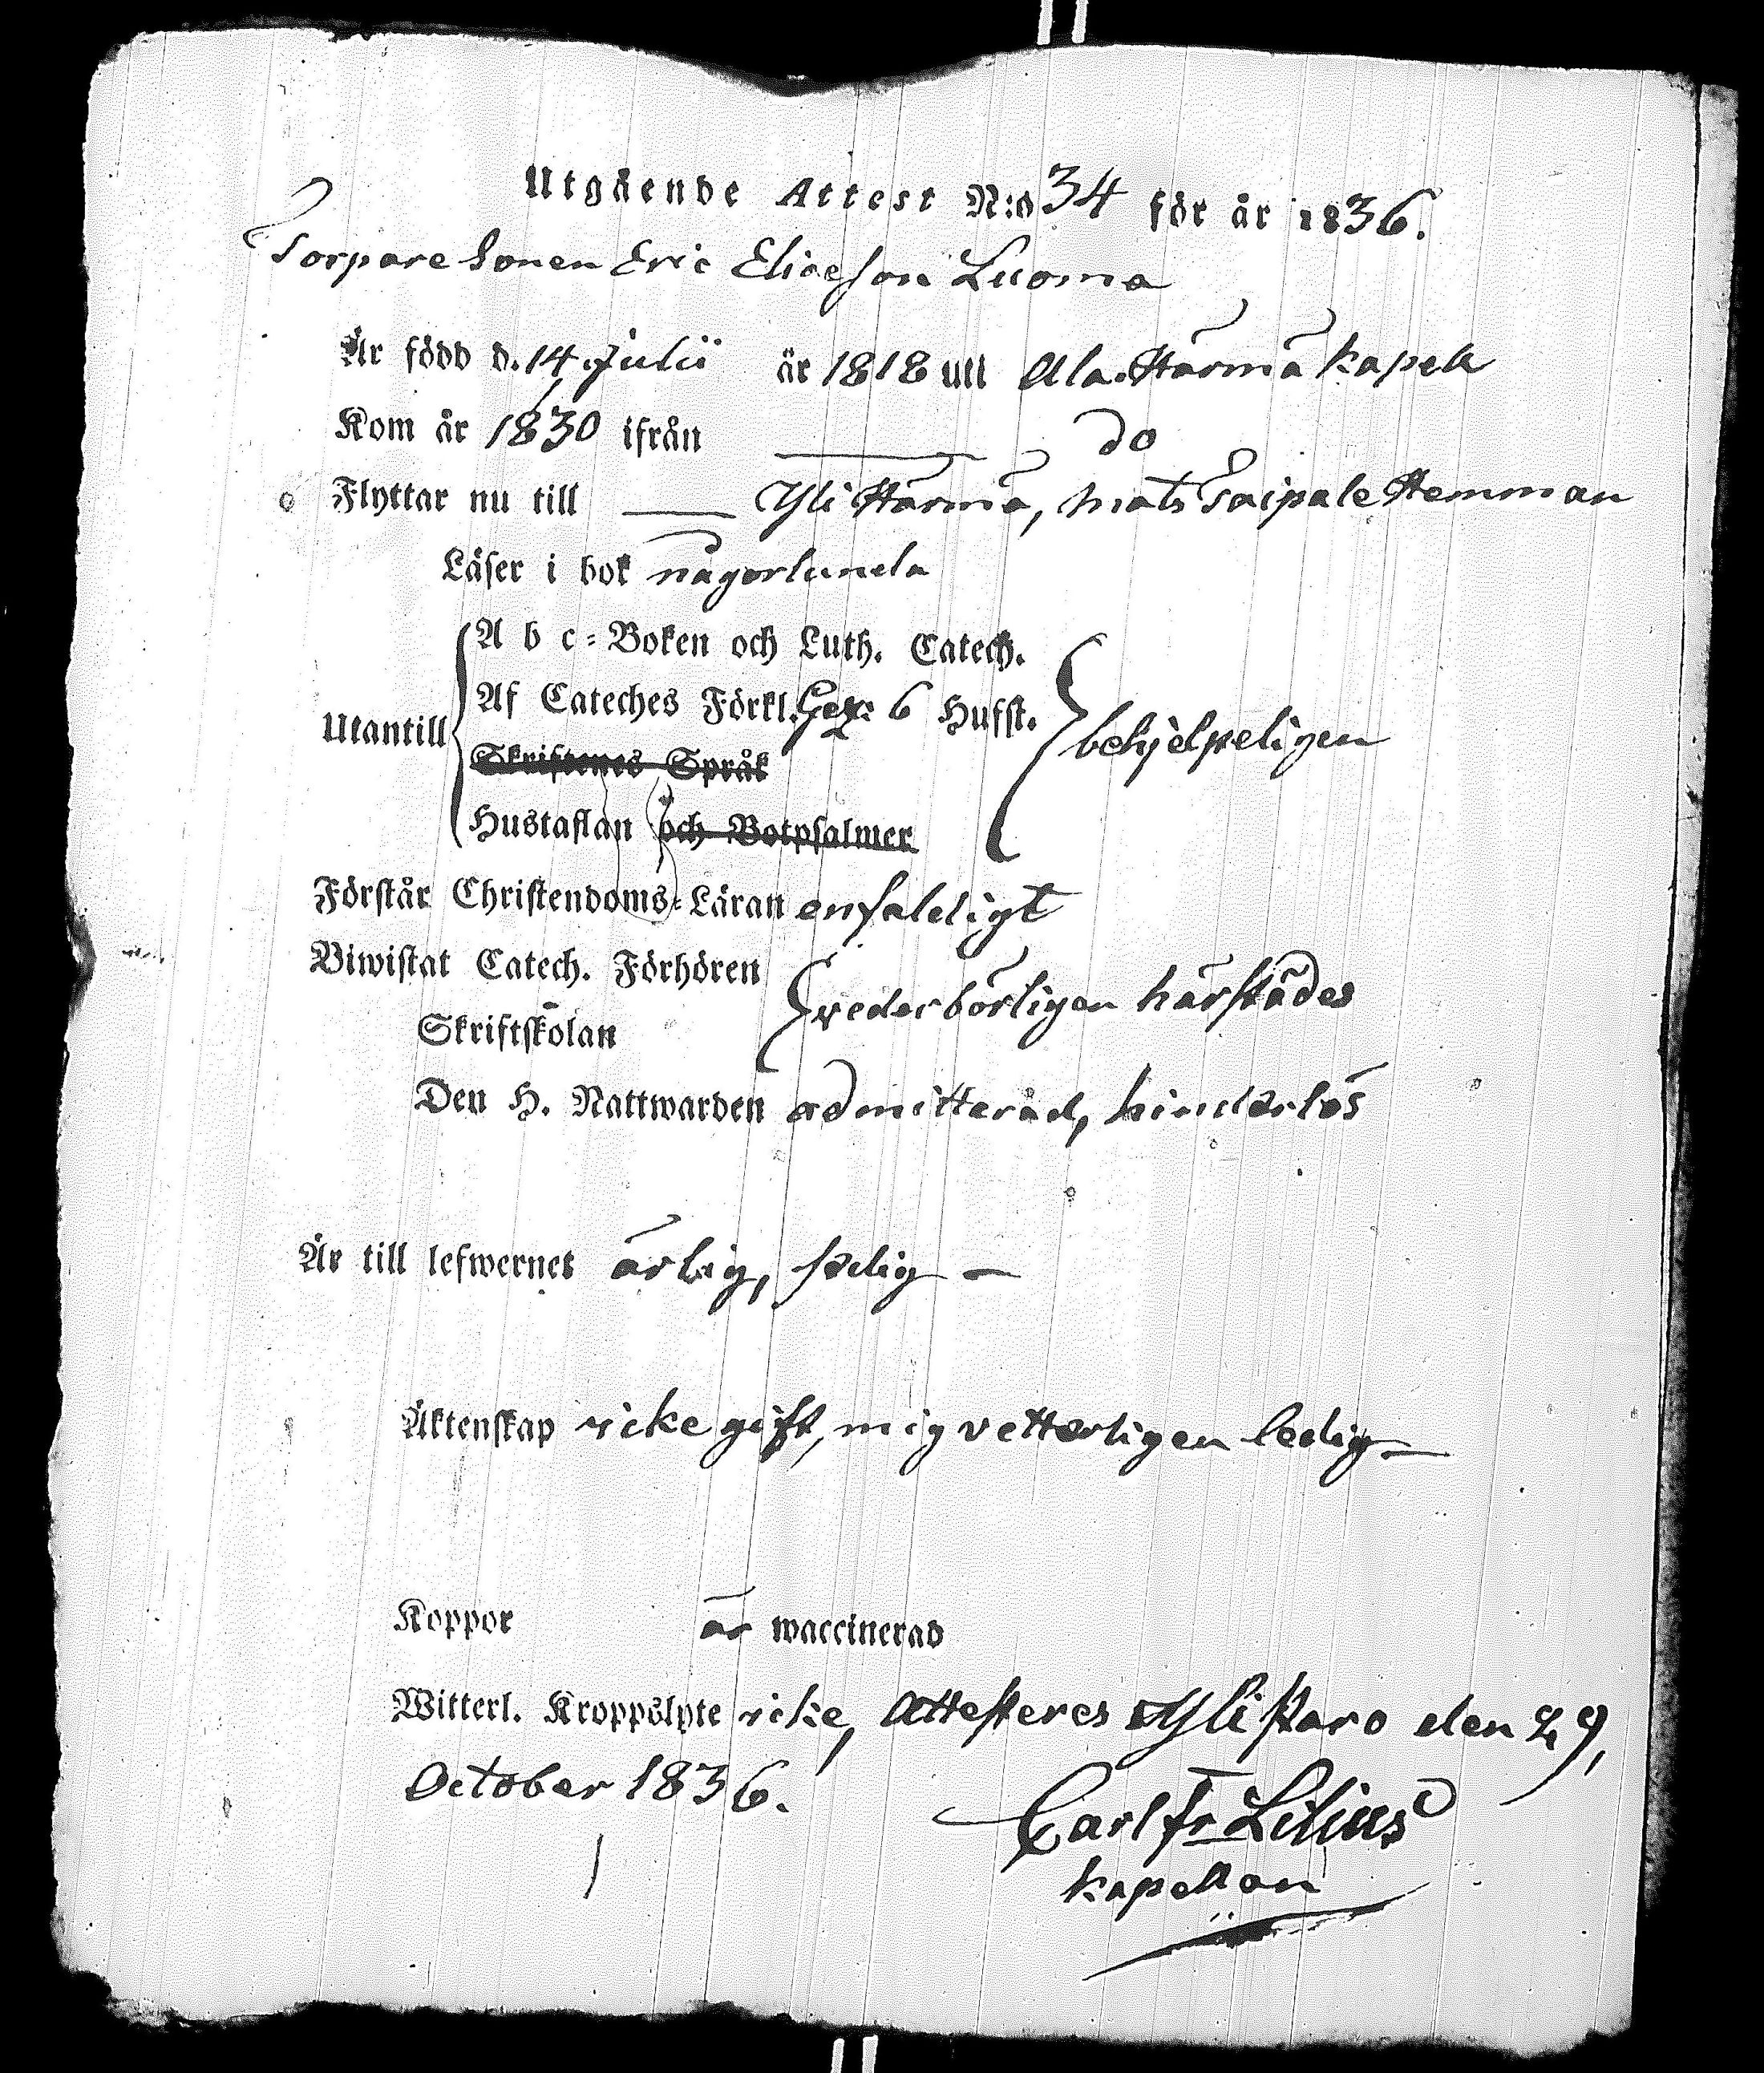 Utgående Attest N:o 34 för år 1836.
Torpare Sonen Eric Eliæson Luoma
Är född d. 14 Julii år 1818 uti Ala. Härmä kapell
Kom år 1830 ifrån — do
Flyttar nu till — Yli Härmä, Mats Taipale Hemman
Läser i bok någorlunda
Utantill
A b c-Boken och Luth. Catech.
Af Cateches Förkl. 6 Hufst.
behjelpeligen
Skriftenes Språk
Hustaflan och Botpsalmer
Förstår Christendoms-Läran enfaldigt
Biwistat Catech. Förhören
vederbörligen härstädes
Skriftskolan
Den H. Nattwarden admitterad, hinderlös
Är till lefwernet ärlig, sedig —
Äktenskap icke gift, mig vetterligen ledig —
Koppor är waccinerad
Witterl. Kroppslyte icke, Attesteres Ylistaro den 29,
October 1836.
Carl Fr Lilius
kapellan